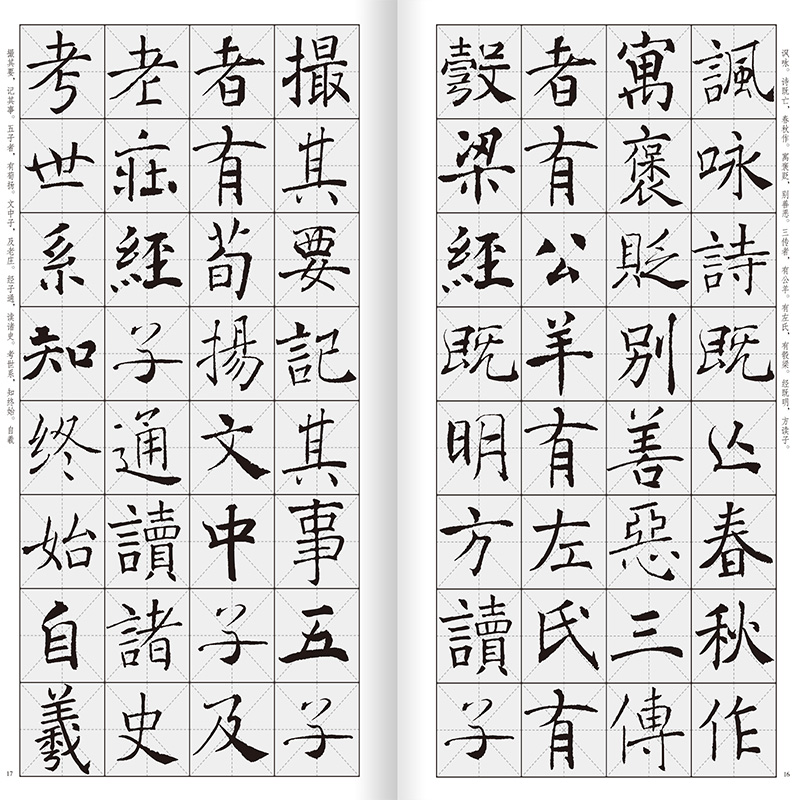 讽咏。诗既亡，春秋作。寓褒贬，别善恶。三传者，有公羊。有左氏，有穀梁。经既明，方读子。
諷咏詩既亡春秋作
寓褒貶别善惡三傳
者有公羊有左氏有
穀梁經既明方讀子
16
撮其要記其事五子
者有荀揚文中子及
老莊經子通讀諸史
考世系知终始自羲
撮其要，记其事。五子者，有荀扬。文中子，及老庄。经子通，读诸史。考世系，知终始。自羲
17